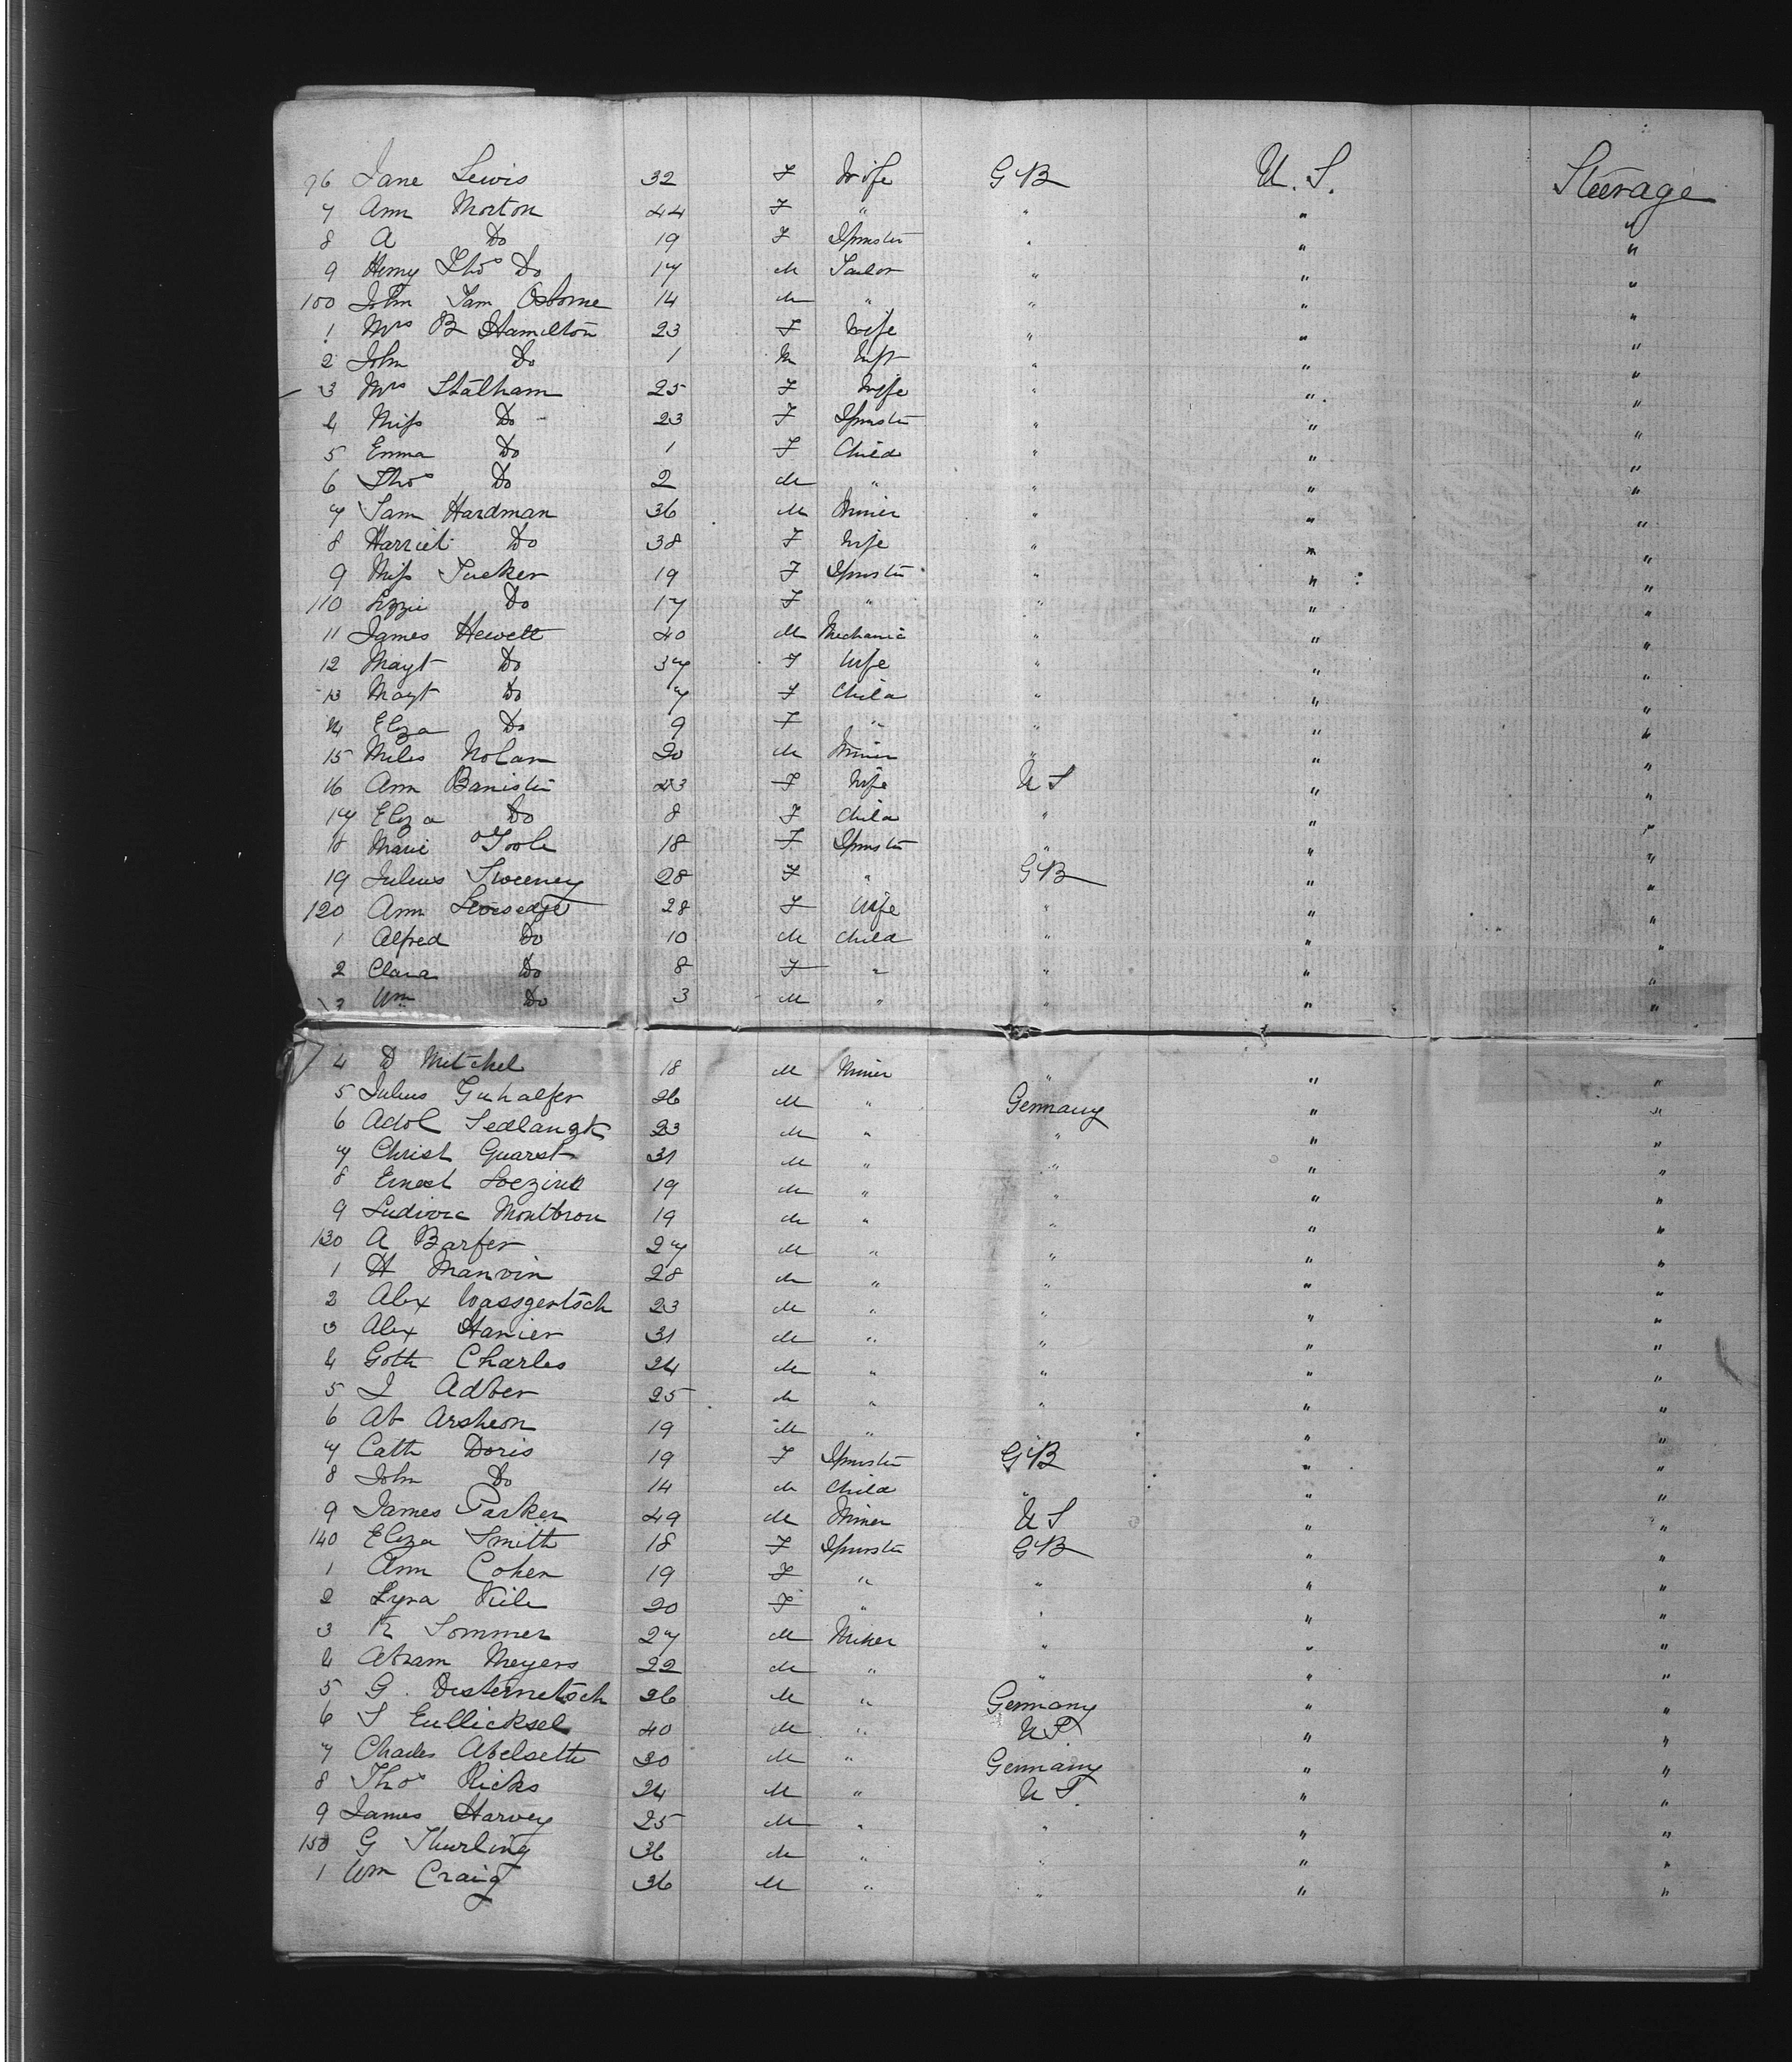 96 Jane Lewis 32 F Wife G B U. S. Steerage
7 Ann Morton 44 F " " " "
8 A Do 19 F Spinster " " "
9 Henry Thos Do 17 M Tailor " " "
100 John Sam Osborne 14 M " " " "
1 Mrs B Hamilton 23 F Wife " " "
2 John Do 1 M Inft " " "
3 Mrs Statham 25 F Wife " " "
4 Miss Do 23 F Spinster " " "
5 Emma Do 1 F Child " " "
6 Thos Do 2 M " " " "
7 Sam Hardman 36 M Miner " " "
8 Harriet Do 38 F Wife " " "
9 Miss Tucker 19 F Spinster " " "
110 Lizzie Do 17 F " " " "
11 James Hewett 40 M Mechanic " " "
12 Magt Do 37 F Wife " " "
13 Magt Do 7 F Child " " "
14 Eliza Do 9 F " " " "
15 Miles Nolan 20 M Miner " " "
16 Ann Banister 43 F Wife U S " "
17 Eliza Do 8 F Child " " "
18 Marie O'Toole 18 F Spinster " " "
19 Julius Sweeney 28 F " G B " "
120 Ann 28 F Wife " " "
1 Alfred Do 10 M Child " " "
2 Clara Do 8 F " " " "
3 Wm Do 3 M " " " "
4 D Mitchel 18 M Miner " " "
5 Julius 26 M " Germany " "
6 Adol 23 M " " " "
7 Christ Guarst 31 M " " " "
8 Ernest 19 M " " " "
9 Ludivic Montbrou 19 M " " " "
130 A Barfer 27 M " " " "
1 H Manvin 28 M " " " "
2 Alex Wassgertsch 23 M " " " "
3 Alex Hanier 31 M " " " "
4 Goth Charles 24 M " " " "
5 J Adber 25 M " " " "
6 Ab Arsheon 19 M " " " "
7 Cath Doris 19 F Spinster G B " "
8 John Do 14 M Child " " "
9 James Parker 49 M Miner U S " "
140 Eliza Smith 18 F Spinster G B " "
1 Ann Cohen 19 F " " " "
2 Lyra 20 F " " " "
3 Sommer 27 M Miner " " "
4 Abram Meyers 22 M " " " "
5 G. Desternetsch 26 M " Germany " "
6 S Eullicksel 40 M " U S. " "
7 Charles Abelseth 30 M " Germany " "
8 Thos Ricks 24 M " U S. " "
9 James Harvey 25 M " " " "
150 G Thurling 36 M " " " "
1 Wm Craig 36 M " " " "